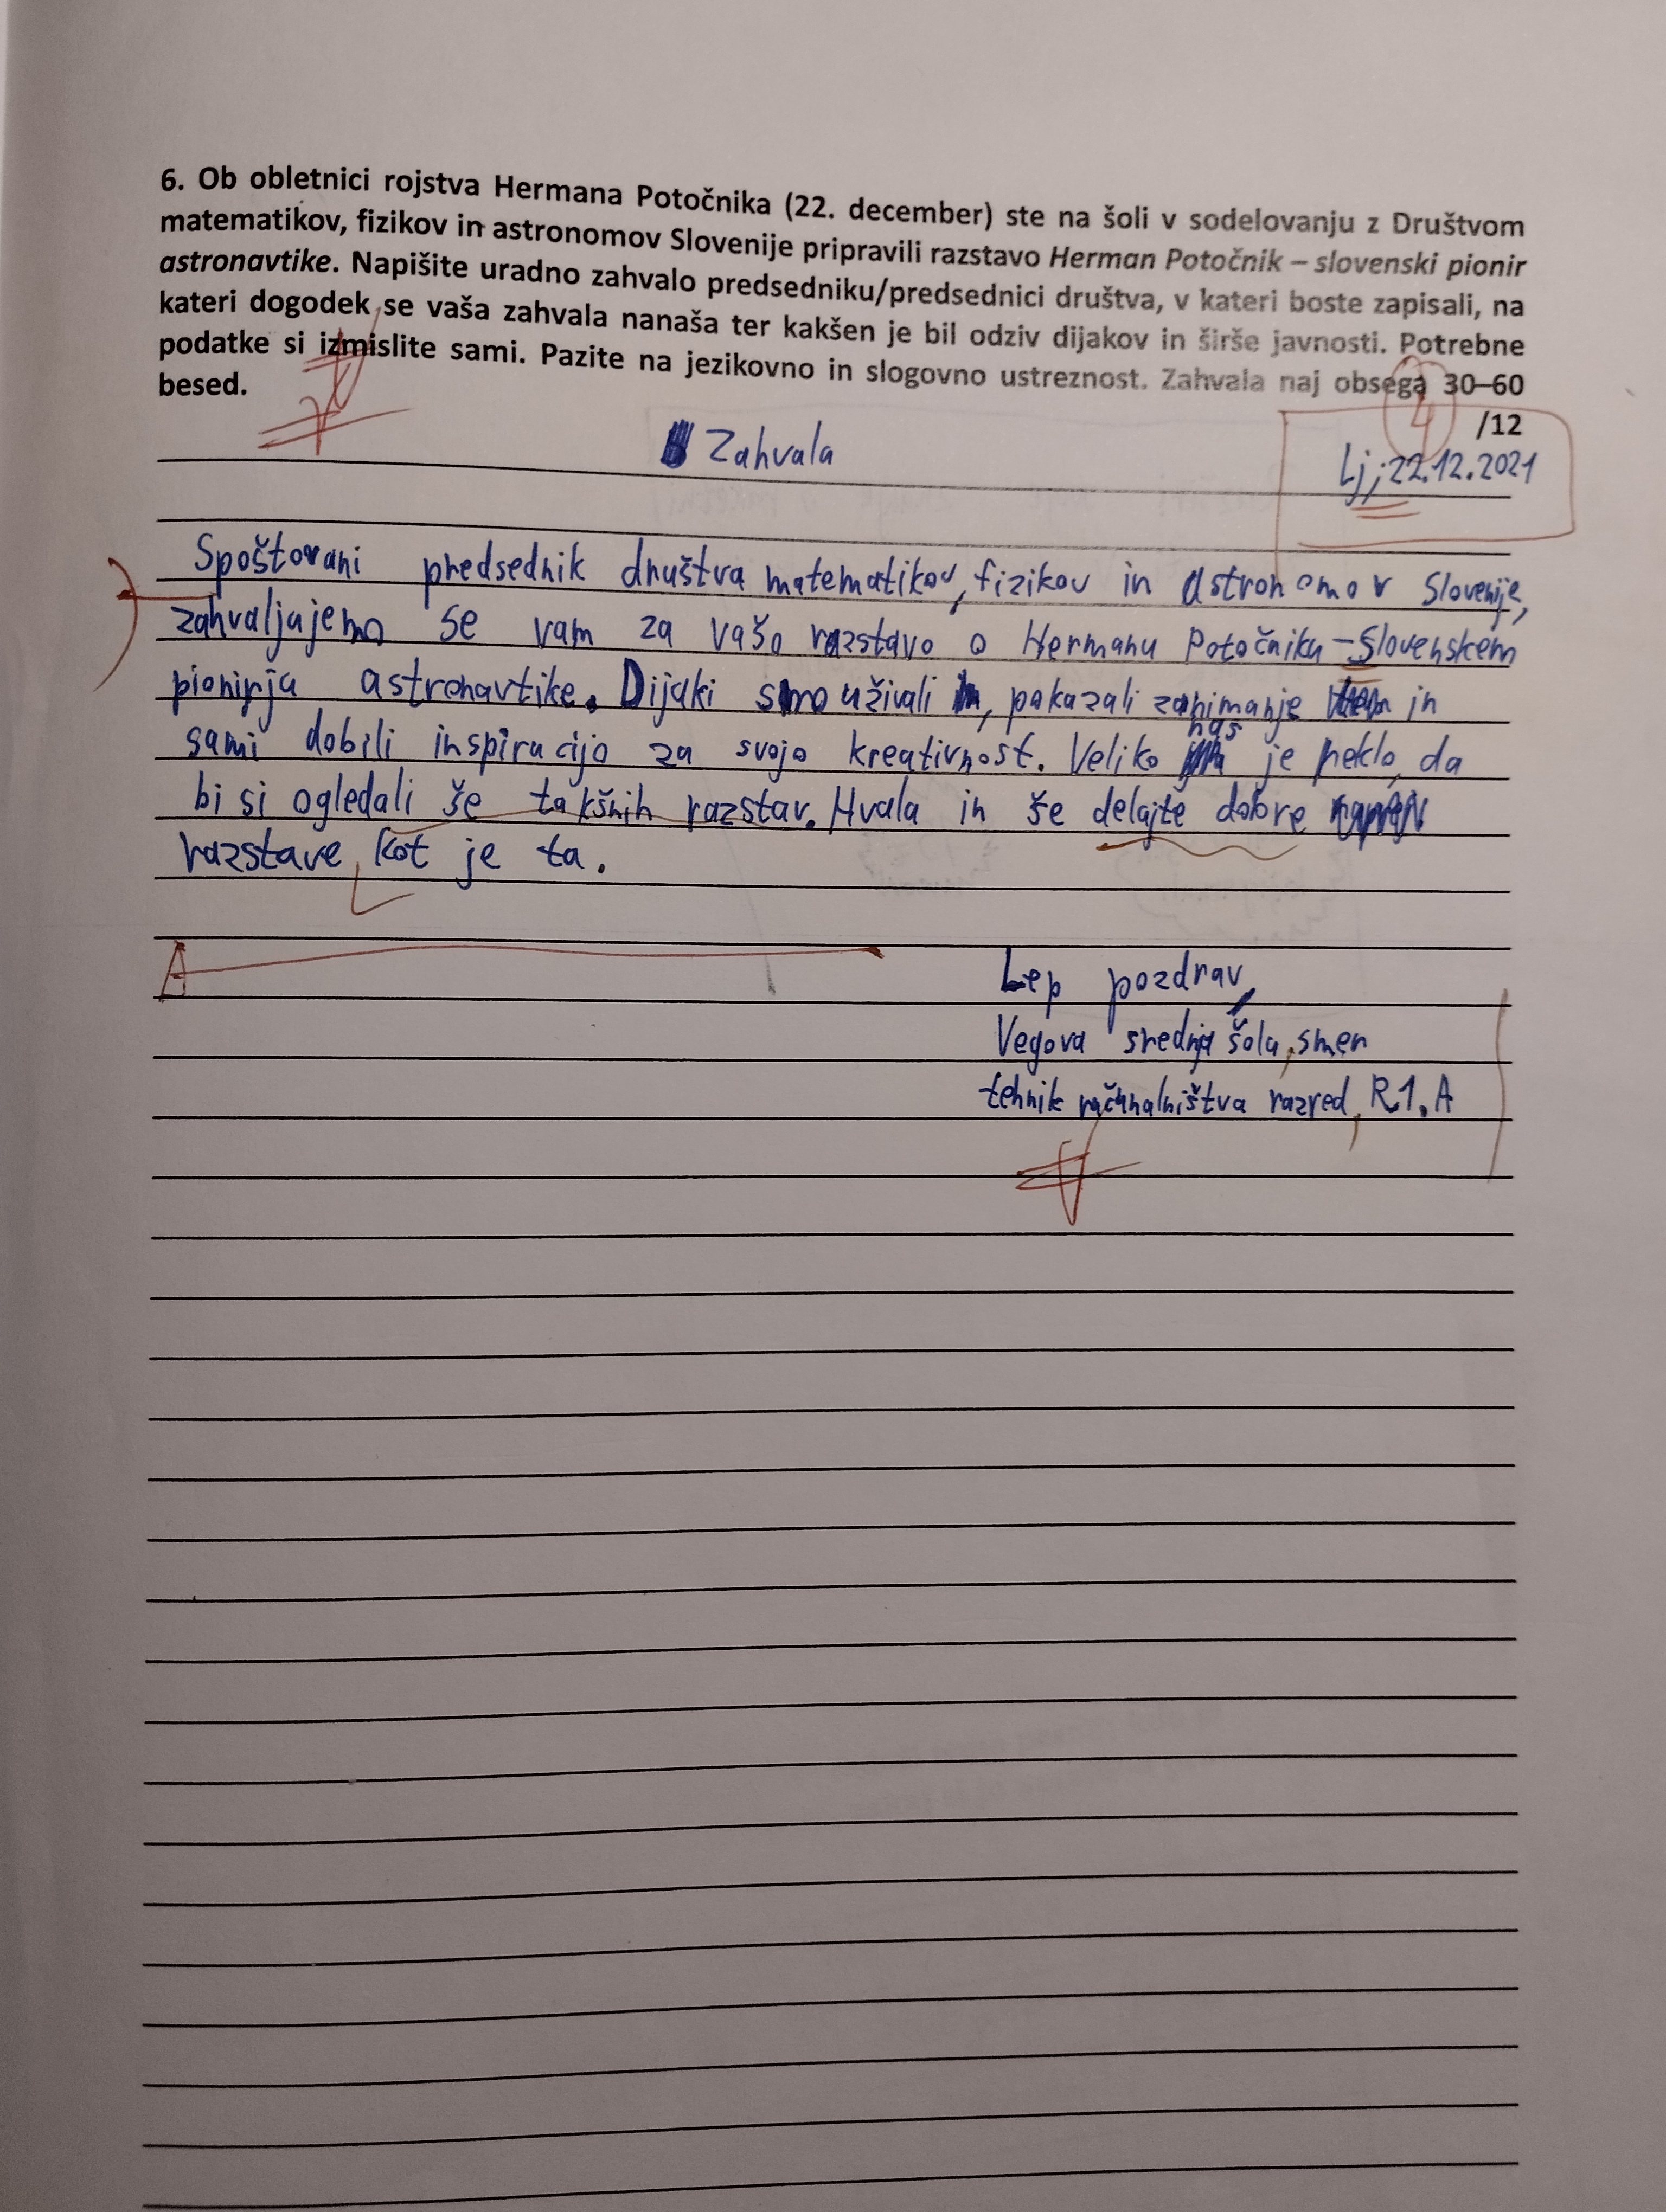 6. Ob obletnici rojstva Hermana Potočnika (22. december) ste na šoli v sodelovanju z Društvom
matematikov, fizikov in astronomov Slovenije pripravili razstavo Herman Potočnik – slovenski pionir
astronavtike. Napišite uradno zahvalo predsedniku/predsednici društva, v kateri boste zapisali, na
kateri dogodek se vaša zahvala nanaša ter kakšen je bil odziv dijakov in širše javnosti. Potrebne
podatke si izmislite sami. Pazite na jezikovno in slogovno ustreznost. Zahvala naj obsega 30–60
besed.
4 /12
Zahvala
Lj, 22.12.2021
Spoštovani predsednik društva matematikov, fizikov in astronomov Slovenije,
zahvaljujemo se vam za vašo razstavo o Hermanu Potočniku – Slovenskem
pionirja astronavtike. Dijaki smo uživali, pokazali zanimanje in
sami dobili inspiracijo za svojo kreativnost. Veliko nas je reklo, da
bi si ogledali še takšnih razstav. Hvala in še delajte dobre
razstave kot je ta.
Lep pozdrav,
Vegova srednja šola, smer
tehnik računalništva razred, R1. A